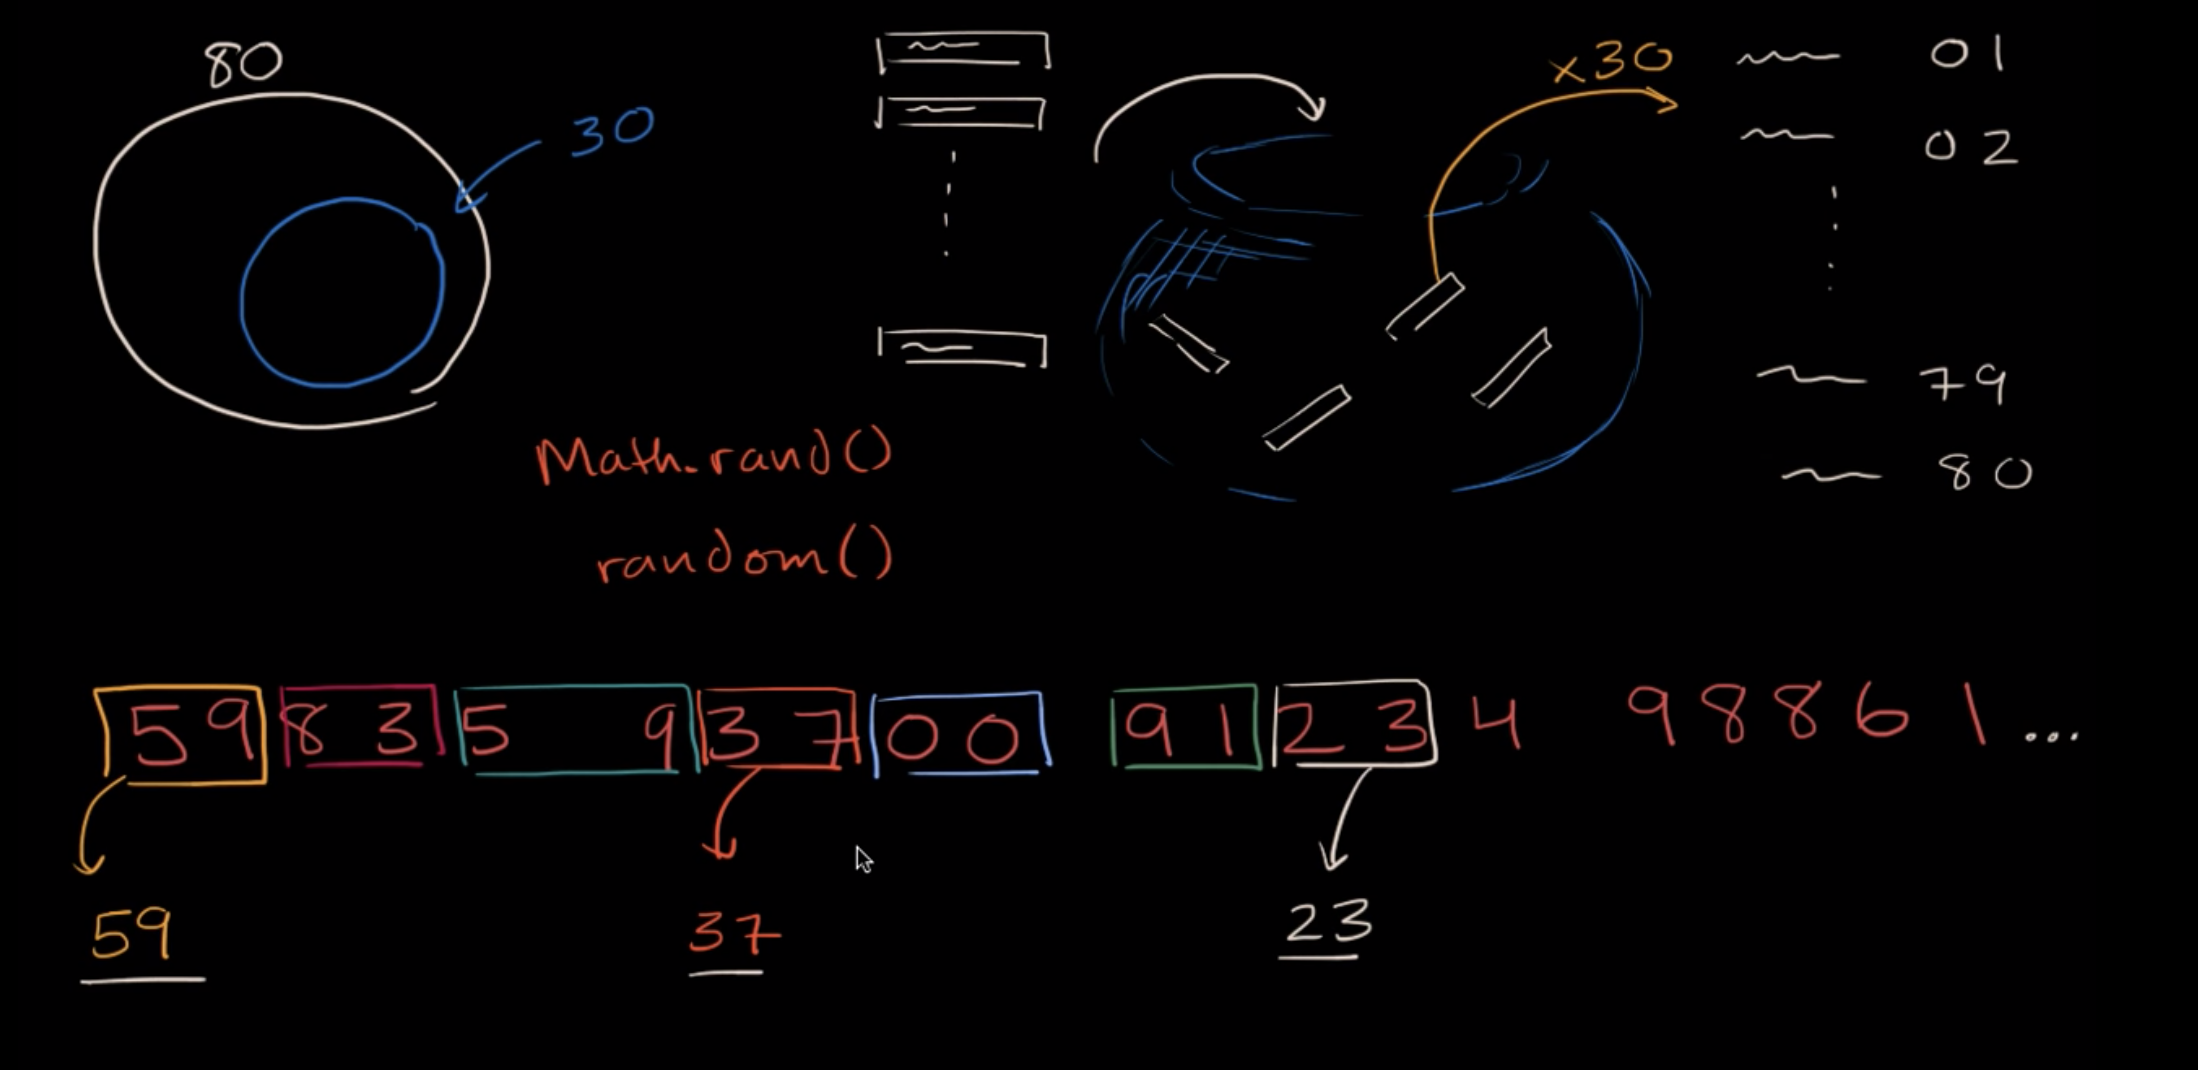 80
30
x30
01
02
79
80
Math.rand()
random()
59 83 5 9 37 00 91 23 4 98861...
59
37
23